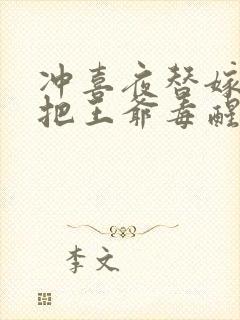 冲喜夜替嫁
把王爷毒醒
李文